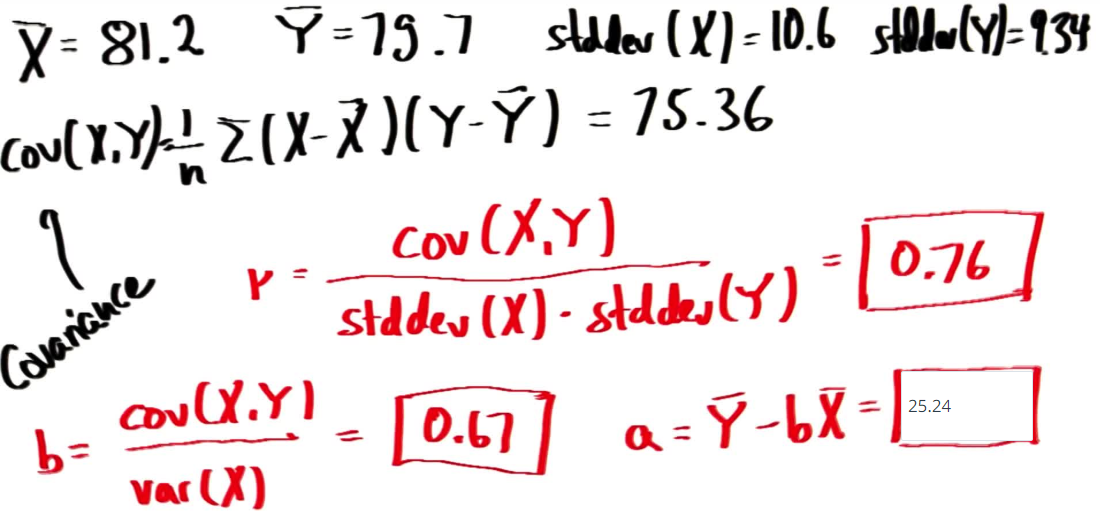 X̄ = 81.2 Ȳ = 79.7 stddev (X) = 10.6 stddev(Y) = 9.34
cov(X,Y) = 1/n Σ(X-X̄)(Y-Ȳ) = 75.36
Covariance
r = cov(X,Y) / stddev(X) · stddev(Y) = 0.76
b = cov(X,Y) / var(X) = 0.67 a = Ȳ - bX̄ = 25.24